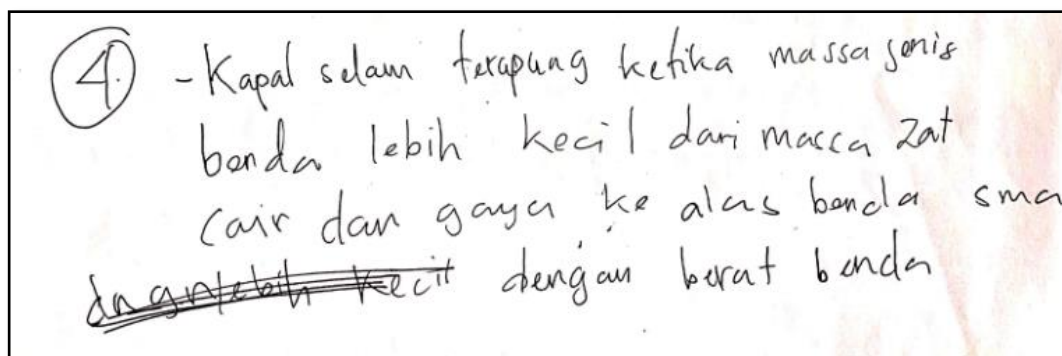 4. - Kapal selam terapung ketika massa jenis
benda lebih kecil dari massa zat
cair dan gaya ke atas benda sma
dngn lebih kecil dengan berat benda